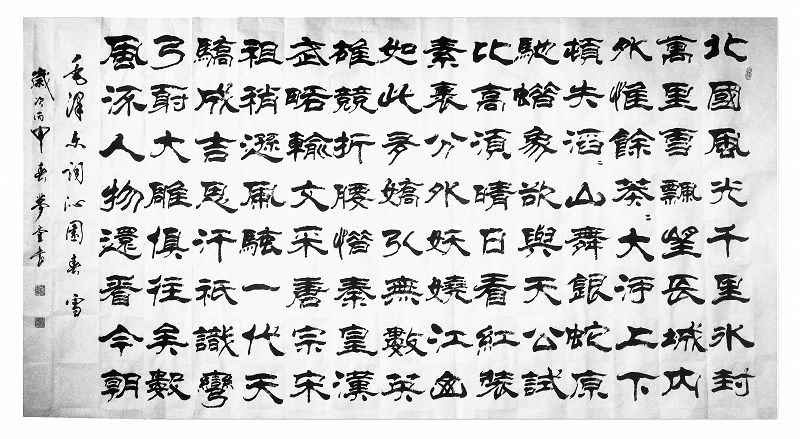 北國風光千里冰封
萬里雪飄望長城內
外惟餘莽〻大河上下
頓失滔〻山舞銀蛇原
馳蜡象欲與天公試
比高須晴日看紅裝
素裹分外妖嬈江山
如此多嬌引無數英
雄競折腰惜秦皇漢
武略輸文采唐宗宋
祖稍遜風騷一代天
驕成吉思汗祇識彎
弓射大雕俱往矣數
風流人物還看今朝
毛澤東詞沁園春雪
歲次丙申春夢書